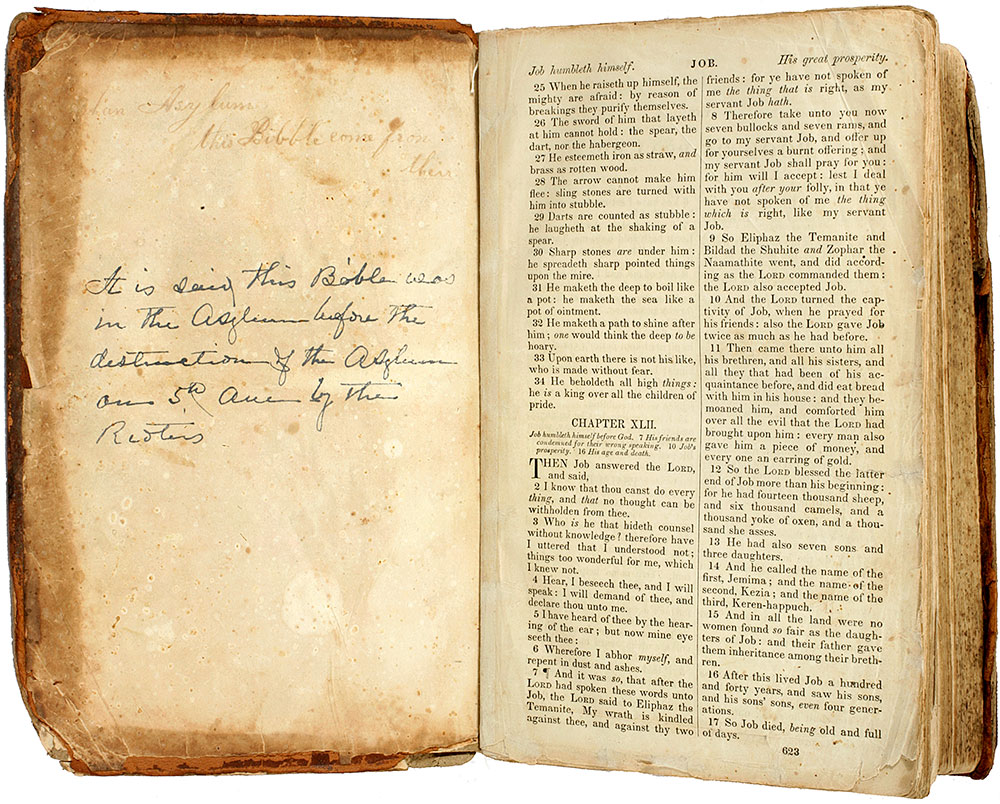 Asylum
this Bibble come from
ther
It is said this Bibble was
in the Asylum before the
destruction of the Asylum
on 5th Ave by the
Rioters
Job humbleth himself.
JOB.
His great prosperity.
25 When he raiseth up himself, the
mighty are afraid: by reason of
breakings they purify themselves.
26 The sword of him that layeth
at him cannot hold: the spear, the
dart, nor the habergeon.
27 He esteemeth iron as straw, and
brass as rotten wood.
28 The arrow cannot make him
flee: sling stones are turned with
him into stubble.
29 Darts are counted as stubble:
he laugheth at the shaking of a
spear.
30 Sharp stones are under him:
he spreadeth sharp pointed things
upon the mire.
31 He maketh the deep to boil like
a pot: he maketh the sea like a
pot of ointment.
32 He maketh a path to shine after
him; one would think the deep to be
hoary.
33 Upon earth there is not his like,
who is made without fear.
34 He beholdeth all high things:
he is a king over all the children of
pride.
CHAPTER XLII.
Job humbleth himself before God. 7 His friends are
condemned for their wrong speaking. 10 Job's
prosperity. 16 His age and death.
THEN Job answered the LORD,
and said,
2 I know that thou canst do every
thing, and that no thought can be
withholden from thee.
3 Who is he that hideth counsel
without knowledge? therefore have
I uttered that I understood not;
things too wonderful for me, which
I knew not.
4 Hear, I beseech thee, and I will
speak: I will demand of thee, and
declare thou unto me.
5 I have heard of thee by the hear-
ing of the ear; but now mine eye
seeth thee:
6 Wherefore I abhor myself, and
repent in dust and ashes.
7 ¶ And it was so, that after the
LORD had spoken these words unto
Job, the LORD said to Eliphaz the
Temanite, My wrath is kindled
against thee, and against thy two
friends: for ye have not spoken of
me the thing that is right, as my
servant Job hath.
8 Therefore take unto you now
seven bullocks and seven rams, and
go to my servant Job, and offer up
for yourselves a burnt offering; and
my servant Job shall pray for you:
for him will I accept: lest I deal
with you after your folly, in that ye
have not spoken of me the thing
which is right, like my servant
Job.
9 So Eliphaz the Temanite and
Bildad the Shuhite and Zophar the
Naamathite went, and did accord-
ing as the LORD commanded them:
the LORD also accepted Job.
10 And the LORD turned the cap-
tivity of Job, when he prayed for
his friends: also the LORD gave Job
twice as much as he had before.
11 Then came there unto him all
his brethren, and all his sisters, and
all they that had been of his ac-
quaintance before, and did eat bread
with him in his house: and they be-
moaned him, and comforted him
over all the evil that the LORD had
brought upon him: every man also
gave him a piece of money, and
every one an earring of gold.
12 So the LORD blessed the latter
end of Job more than his beginning:
for he had fourteen thousand sheep,
and six thousand camels, and a
thousand yoke of oxen, and a thou-
sand she asses.
13 He had also seven sons and
three daughters.
14 And he called the name of the
first, Jemima; and the name of the
second, Kezia; and the name of the
third, Keren-happuch.
15 And in all the land were no
women found so fair as the daugh-
ters of Job: and their father gave
them inheritance among their breth-
ren.
16 After this lived Job a hundred
and forty years, and saw his sons,
and his sons' sons, even four gener-
ations.
17 So Job died, being old and full
of days.
623